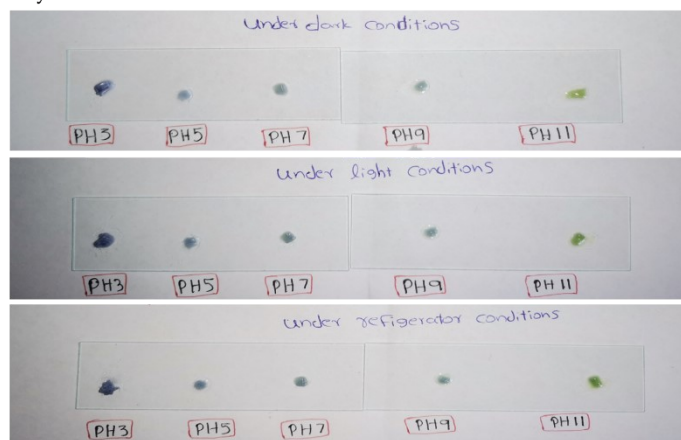 under dark conditions
PH3 PH5 PH 7 PH9 PH 11
under light conditions
PH3 PH5 PH7 PH9 PH 11
under refigerator conditions
PH3 PH5 PH7 PH9 PH 11